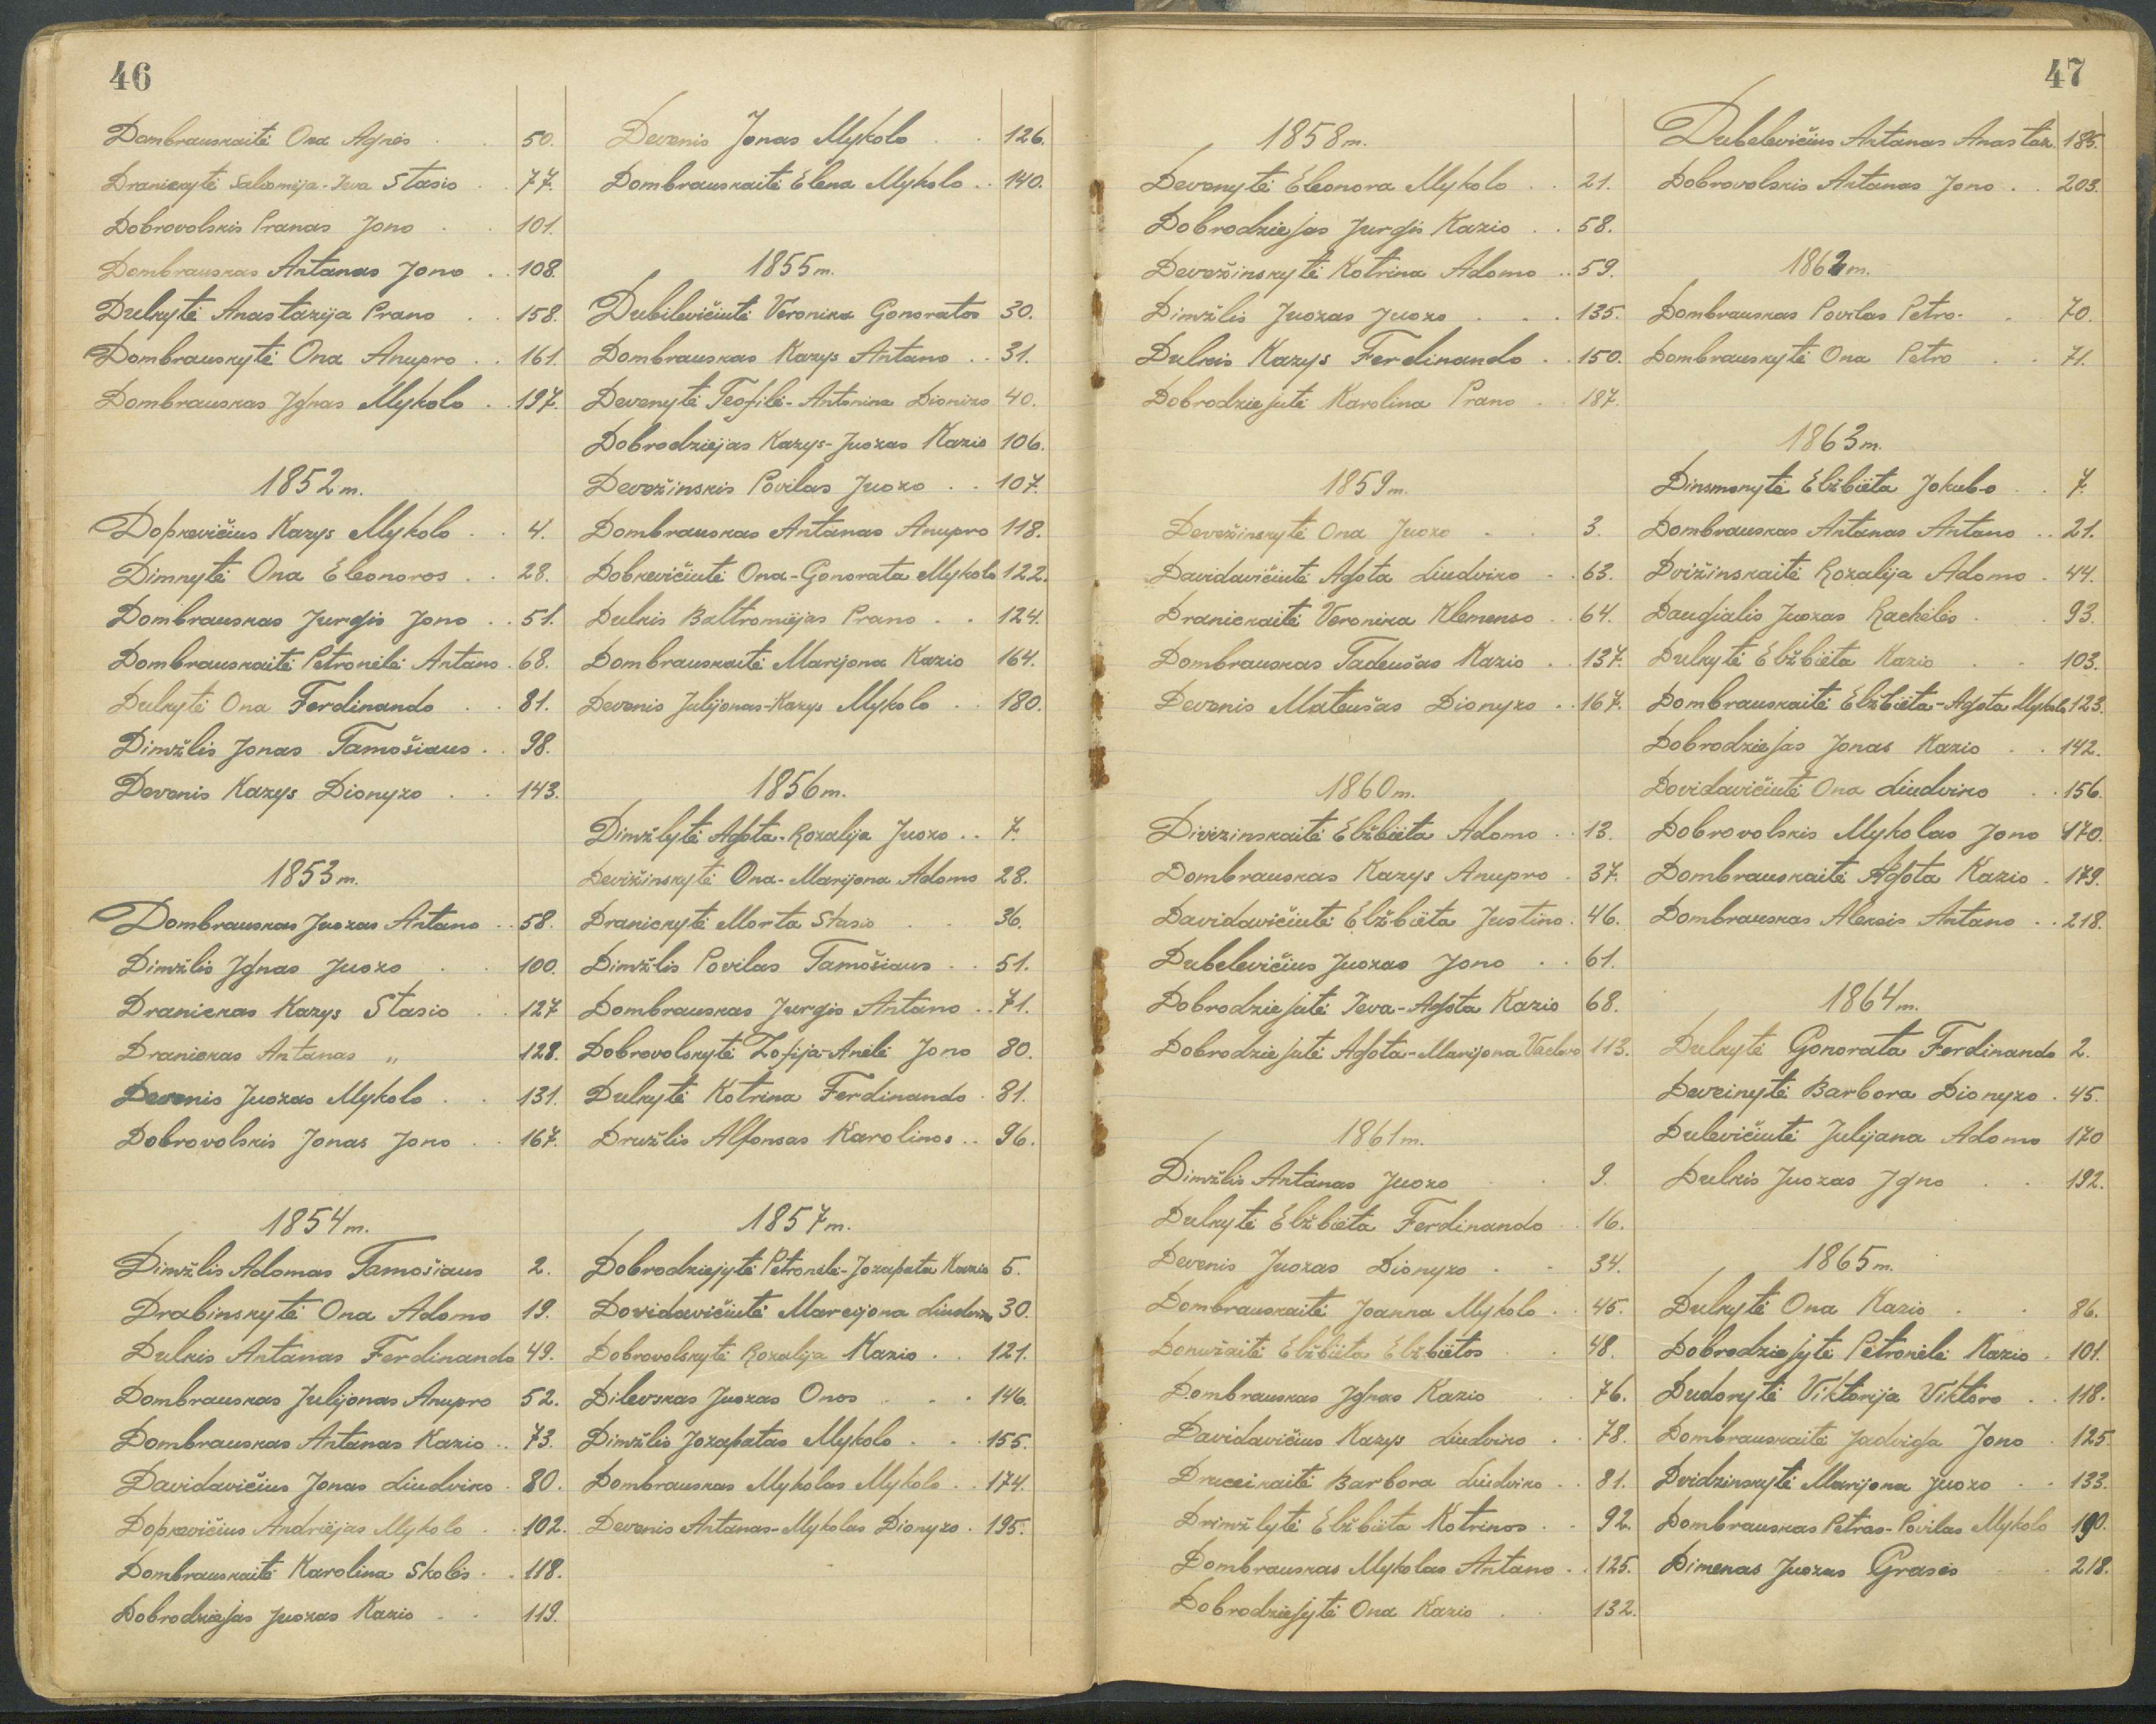 46
Dombrauskaitė Ona Agnės . . 50.
Dranickytė Saliomija-Ieva Stasio . . 77.
Dobrovolskis Pranas Jono . . 101.
Dombrauskas Antanas Jono . . 108.
Dulkytė Anastazija Prano . . 158.
Dombrauskytė Ona Anupro . . 161.
Dombrauskas Ignas Mykolo . 197.
1852 m.
Dopkevičius Kazys Mykolo . . 4.
Dimnytė Ona Eleonoros . . 28.
Dombrauskas Jurgis Jono . . 51.
Dombrauskaitė Petronėlė Antano . 68.
Dulkytė Ona Ferdinando . . 81.
Dimžlis Jonas Tamošiaus . . 98.
Devenis Kazys Dionyzo . . 143.
1853 m.
Dombrauskas Juozas Antano . . 58.
Dimžlis Ignas Juozo . . 100.
Dranickas Kazys Stasio . . 127
Dranickas Antanas „ 128.
Devenis Juozas Mykolo . . 131.
Dobrovolskis Jonas Jono . . 167.
1854 m.
Dimžlis Adomas Tamošiaus 2.
Drabinskytė Ona Adomo 19.
Dulkis Antanas Ferdinando 49.
Dombrauskas Julijonas Anupro 52.
Dombrauskas Antanas Kazio . . 73.
Davidavičius Jonas Liudviko . 80.
Dopkevičius Andriejas Mykolo . . 102.
Dombrauskaitė Karolina Skolės . . 118.
Dobrodziejas Juozas Kazio . . 119.
Devenis Jonas Mykolo . . 126.
Dombrauskaitė Elena Mykolo . . 140.
1855 m.
Dubilevičiutė Veronika Gonoratos 30.
Dombrauskas Kazys Antano . . 31.
Devenytė Teofilė-Antonina Dionizo 40.
Dobrodziejas Kazys-Juozas Kazio 106.
Devežinskis Povilas Juozo . . 107.
Dombrauskas Antanas Anupro 118.
Dobkevičiutė Ona-Gonorata Mykolo 122.
Dulkis Baltromiejas Prano . . 124.
Dombrauskaitė Marijona Kazio 164.
Devenis Julijonas-Kazys Mykolo . . 180.
1856 m.
Dimžlytė Agota-Rozalija Juozo . . 7.
Devižinskytė Ona-Marijona Adomo 28.
Dranickytė Morta Stasio . . 36.
Dimžlis Povilas Tamošiaus . . 51.
Dombrauskas Jurgis Antano . . 71.
Dobrovolskytė Zofija-Anėlė Jono 80.
Dulkytė Kotrina Ferdinando . 81.
Družlis Alfonsas Karolinos . . 96.
1857 m.
Dobrodziejytė Petronėlė-Jozapata Kazio 5.
Dovidavičiutė Marcijona Liudviko 30.
Dobrovolskytė Rozalija Kazio . . 121.
Dilevskas Juozas Onos . . . 146.
Dimžlis Jozapatas Mykolo . . . 155.
Dombrauskas Mykolas Mykolo . . 174.
Devenis Antanas-Mykolas Dionyzo . 195.
47
1858 m.
Devenytė Eleonora Mykolo . . 21.
Dobrodziejas Jurgis Kazio . . 58.
Devežinskytė Kotrina Adomo . . 59.
Dimžlis Juozas Juozo . . . 135.
Dulkis Kazys Ferdinando . . 150.
Dobrodziejutė Karolina Prano . . 187.
1859 m.
Devežinskytė Ona Juozo . . 3.
Davidavičiutė Agota Liudviko . . 63.
Dranickaitė Veronika Klemenso . . 64.
Dombrauskas Tadeušas Kazio . . 137.
Devenis Mateušas Dionyzo . . 167.
1860 m.
Divizinskaitė Elžbieta Adomo . . 13.
Dombrauskas Kazys Anupro . 37.
Davidavičiutė Elžbieta Justino . 46.
Dubelevičius Juozas Jono . . 61.
Dobrodziejutė Ieva-Agota Kazio 68.
Dobrodziejutė Agota-Marijona Vaclovo 113.
1861 m.
Dimžlis Antanas Juozo . . 9.
Dulkytė Elžbieta Ferdinando . 16.
Devenis Juozas Dionyzo . . 34.
Dombrauskaitė Joanna Mykolo . . 45.
Donužaitė Elžbieta Elžbietos . . 48.
Dombrauskas Ignas Kazio . . 76.
Davidavičius Kazys Liudviko . . 78.
Druceikaitė Barbora Liudviko . . 81.
Drimžlytė Elžbieta Kotrinos . . 92.
Dombrauskas Mykolas Antano . . 125.
Dobrodziejytė Ona Kazio . . 132.
Dubelevičius Antanas Anastaz. 185.
Dobrovolskis Antanas Jono . . 203.
1862 m.
Dombrauskas Povilas Petro . . 70.
Dombrauskytė Ona Petro . . 71.
1863 m.
Dinsmonytė Elžbieta Jokubo . . 7.
Dombrauskas Antanas Antano . . 21.
Dvižinskaitė Rozalija Adomo . 44.
Daugialis Juozas Rachėlės . . 93.
Dulkytė Elžbieta Kazio . . 103.
Dombrauskaitė Elžbieta-Agota Mykolo 123.
Dobrodziejas Jonas Kazio . . 142.
Dovidavičiutė Ona Liudviko . . 156.
Dobrovolskis Mykolas Jono 170.
Dombrauskaitė Agota Kazio . 179.
Dombrauskas Aleksis Antano . . 218.
1864 m.
Dulkytė Gonorata Ferdinando 2.
Deveinytė Barbora Dionyzo . 45.
Dulevičiutė Julijana Adomo 170
Dulkis Juozas Igno . . 192.
1865 m.
Dulkytė Ona Kazio . . 86.
Dobrodziejytė Petronėlė Kazio . 101.
Dudorytė Viktorija Viktoro . . 118.
Dombrauskaitė Jadviga Jono . 125.
Dvidzinskytė Marijona Juozo . . 133.
Dombrauskas Petras-Povilas Mykolo 190.
Dimenas Juozas Grasės . . 218.